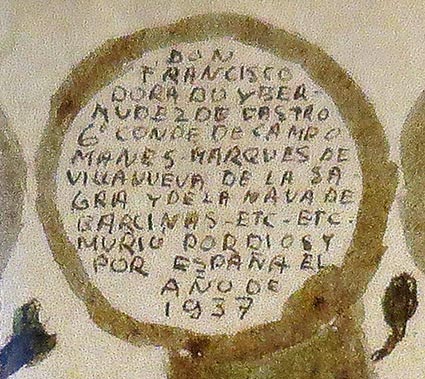 DON
FRANCISCO
DORADO Y BER-
MUDEZ DE CASTRO
6º CONDE DE CAMPO
MANES-MARQUES DE
VILLANUEVA DE LA SA
GRA Y DE LA NAVA DE
BARCINAS-ETC-ETC-
MURIO POR DIOS Y
POR ESPAÑA EL
AÑO DE
1937